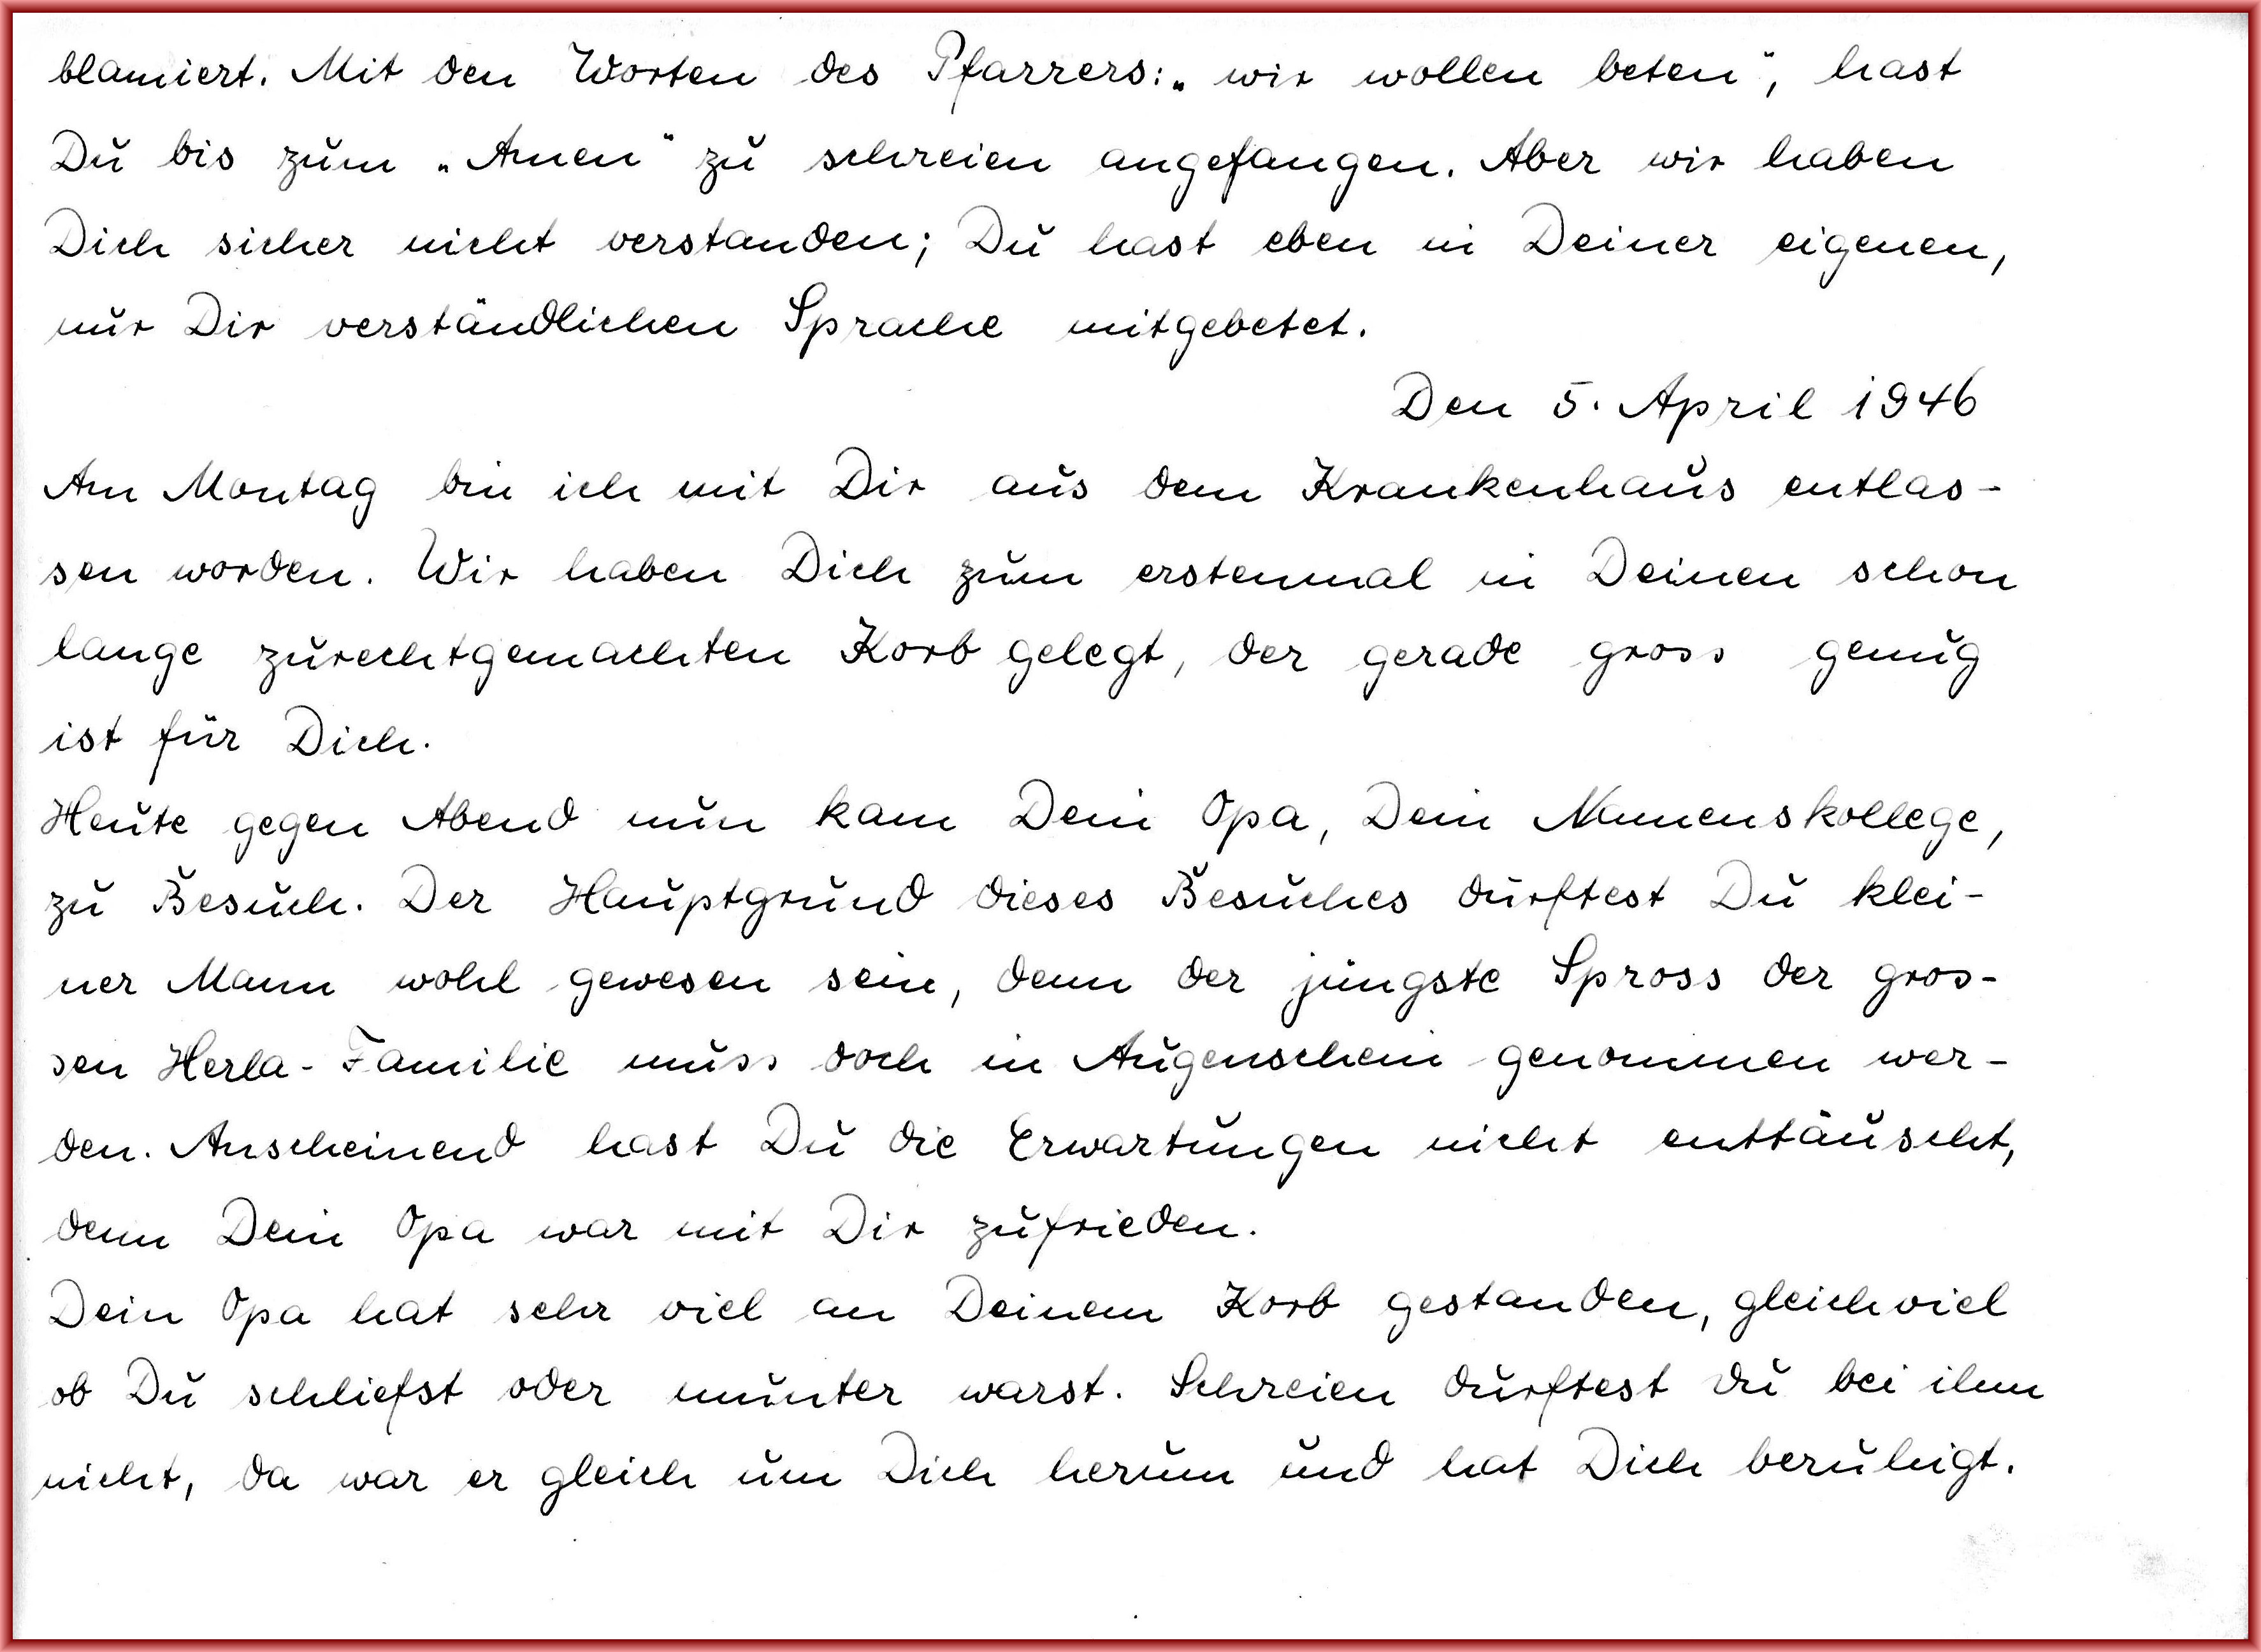 blamiert. Mit den Worten des Pfarrers: „wir wollen beten", hast
Du bis zum „Amen" zu schreien angefangen. Aber wir haben
Dich sicher nicht verstanden; Du hast eben in Deiner eigenen,
nur Dir verständlichen Sprache mitgebetet.
Den 5. April 1946
Am Montag bin ich mit Dir aus dem Krankenhaus entlas-
sen worden. Wir haben Dich zum erstenmal in Deinen schon
lange zurechtgemachten Korb gelegt, der gerade gross genug
ist für Dich.
Heute gegen Abend nun kam Dein Opa, Dein Namenskollege,
zu Besuch. Der Hauptgrund dieses Besuches durftest Du klei-
ner Mann wohl gewesen sein, denn der jüngste Spross der gros-
sen Herla-Familie muss doch in Augenschein genommen wer-
den. Anscheinend hast Du die Erwartungen nicht enttäuscht,
denn Dein Opa war mit Dir zufrieden.
Dein Opa hat sehr viel an Deinem Korb gestanden, gleichviel
ob Du schliefst oder munter warst. Schreien durftest Du bei ihm
nicht, da war er gleich um Dich herum und hat Dich beruhigt.